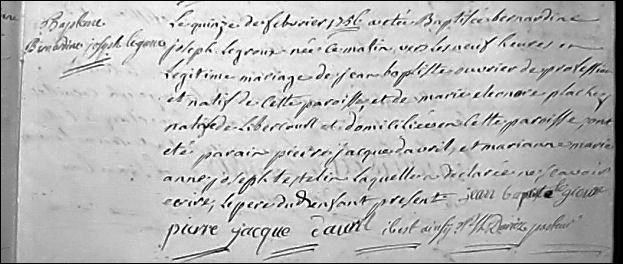 Bapteme
Bernardine joseph legroux
Le quinze de fevrier 1756 a eté Baptisée bernardine
joseph legroux née ce matin vers les neuf heures en
legitime mariage de jean baptiste ouvrier de profession
et natif de cette paroisse et de marie eleonore
native de Libercourt et domiciliés en cette paroisse, ont
etés parain pierre jacque davril, et marianne marie
anne joseph testelin laquelle a declarée ne scavoir
ecrire, le pere dud enfant present jean baptiste legroux
pierre jacque davril il est ainsy pasteur